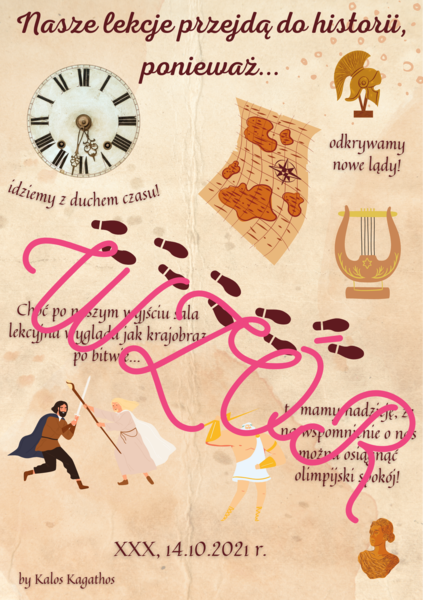 Nasze lekcje przejdą do historii,
ponieważ...
odkrywamy
nowe lądy!
idziemy z duchem czasu!
WZÓR
Choć po naszym wyjściu sala
lekcyjna wygląda jak krajobraz
po bitwie...
to mamy nadzieję, że
na wspomnienie o nas
można osiągnąć
olimpijski spokój!
XXX, 14.10.2021 r.
by Kalos Kagathos